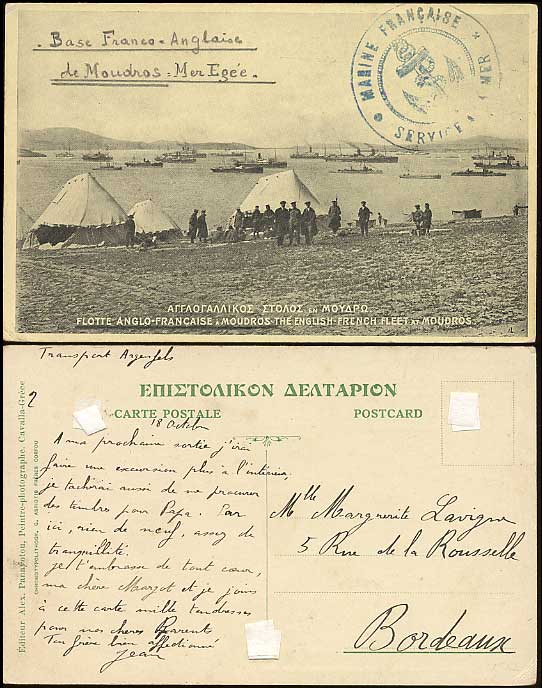 Base Franco-Anglaise
de Moudros - Mer Egée.
MARINE FRANÇAISE
SERVICE A MER
ΑΓΓΛΟΓΑΛΛΙΚΟΣ ΣΤΟΛΟΣ ΕΝ ΜΟΥΔΡΩ
FLOTTE ANGLO-FRANÇAISE À MOUDROS-THE ENGLISH-FRENCH FLEET AT MOUDROS.
Transport Argenfels
2
ΕΠΙΣΤΟΛΙΚΟΝ ΔΕΛΤΑΡΙΟΝ
CARTE POSTALE POSTCARD
Éditeur Alex. Panayotou, Peintre-photographe, Cavalla-Grèce
CHROMOTYPOLITHOGR. G. ASPIOTIS FRÈRES CORFOU
18 Octobre
A ma prochaine sortie j'irai
faire une excursion plus à l'intérieur,
je tâcherai aussi de me procurer
des timbres pour Papa. Par
ici, rien de neuf, assez de
tranquillité.
Je t'embrasse de tout cœur,
ma chère Margot et je joins
à cette carte mille tendresses
pour nos chers Parents
Ton frère bien affectionné
Jean
Mlle Marguerite Lavigne
5 Rue de la Rousselle
Bordeaux